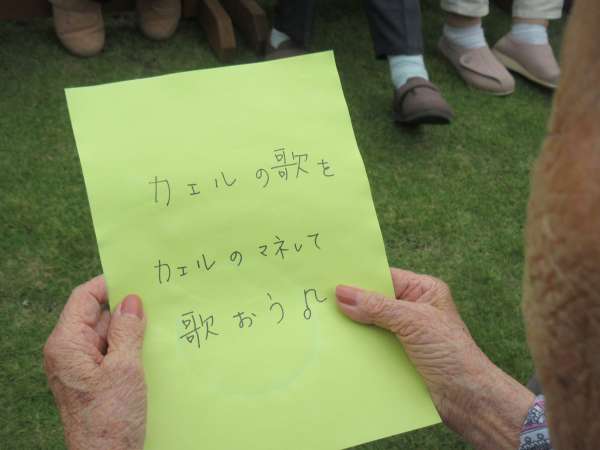 カエルの歌を
カエルのマネして
歌おう♫